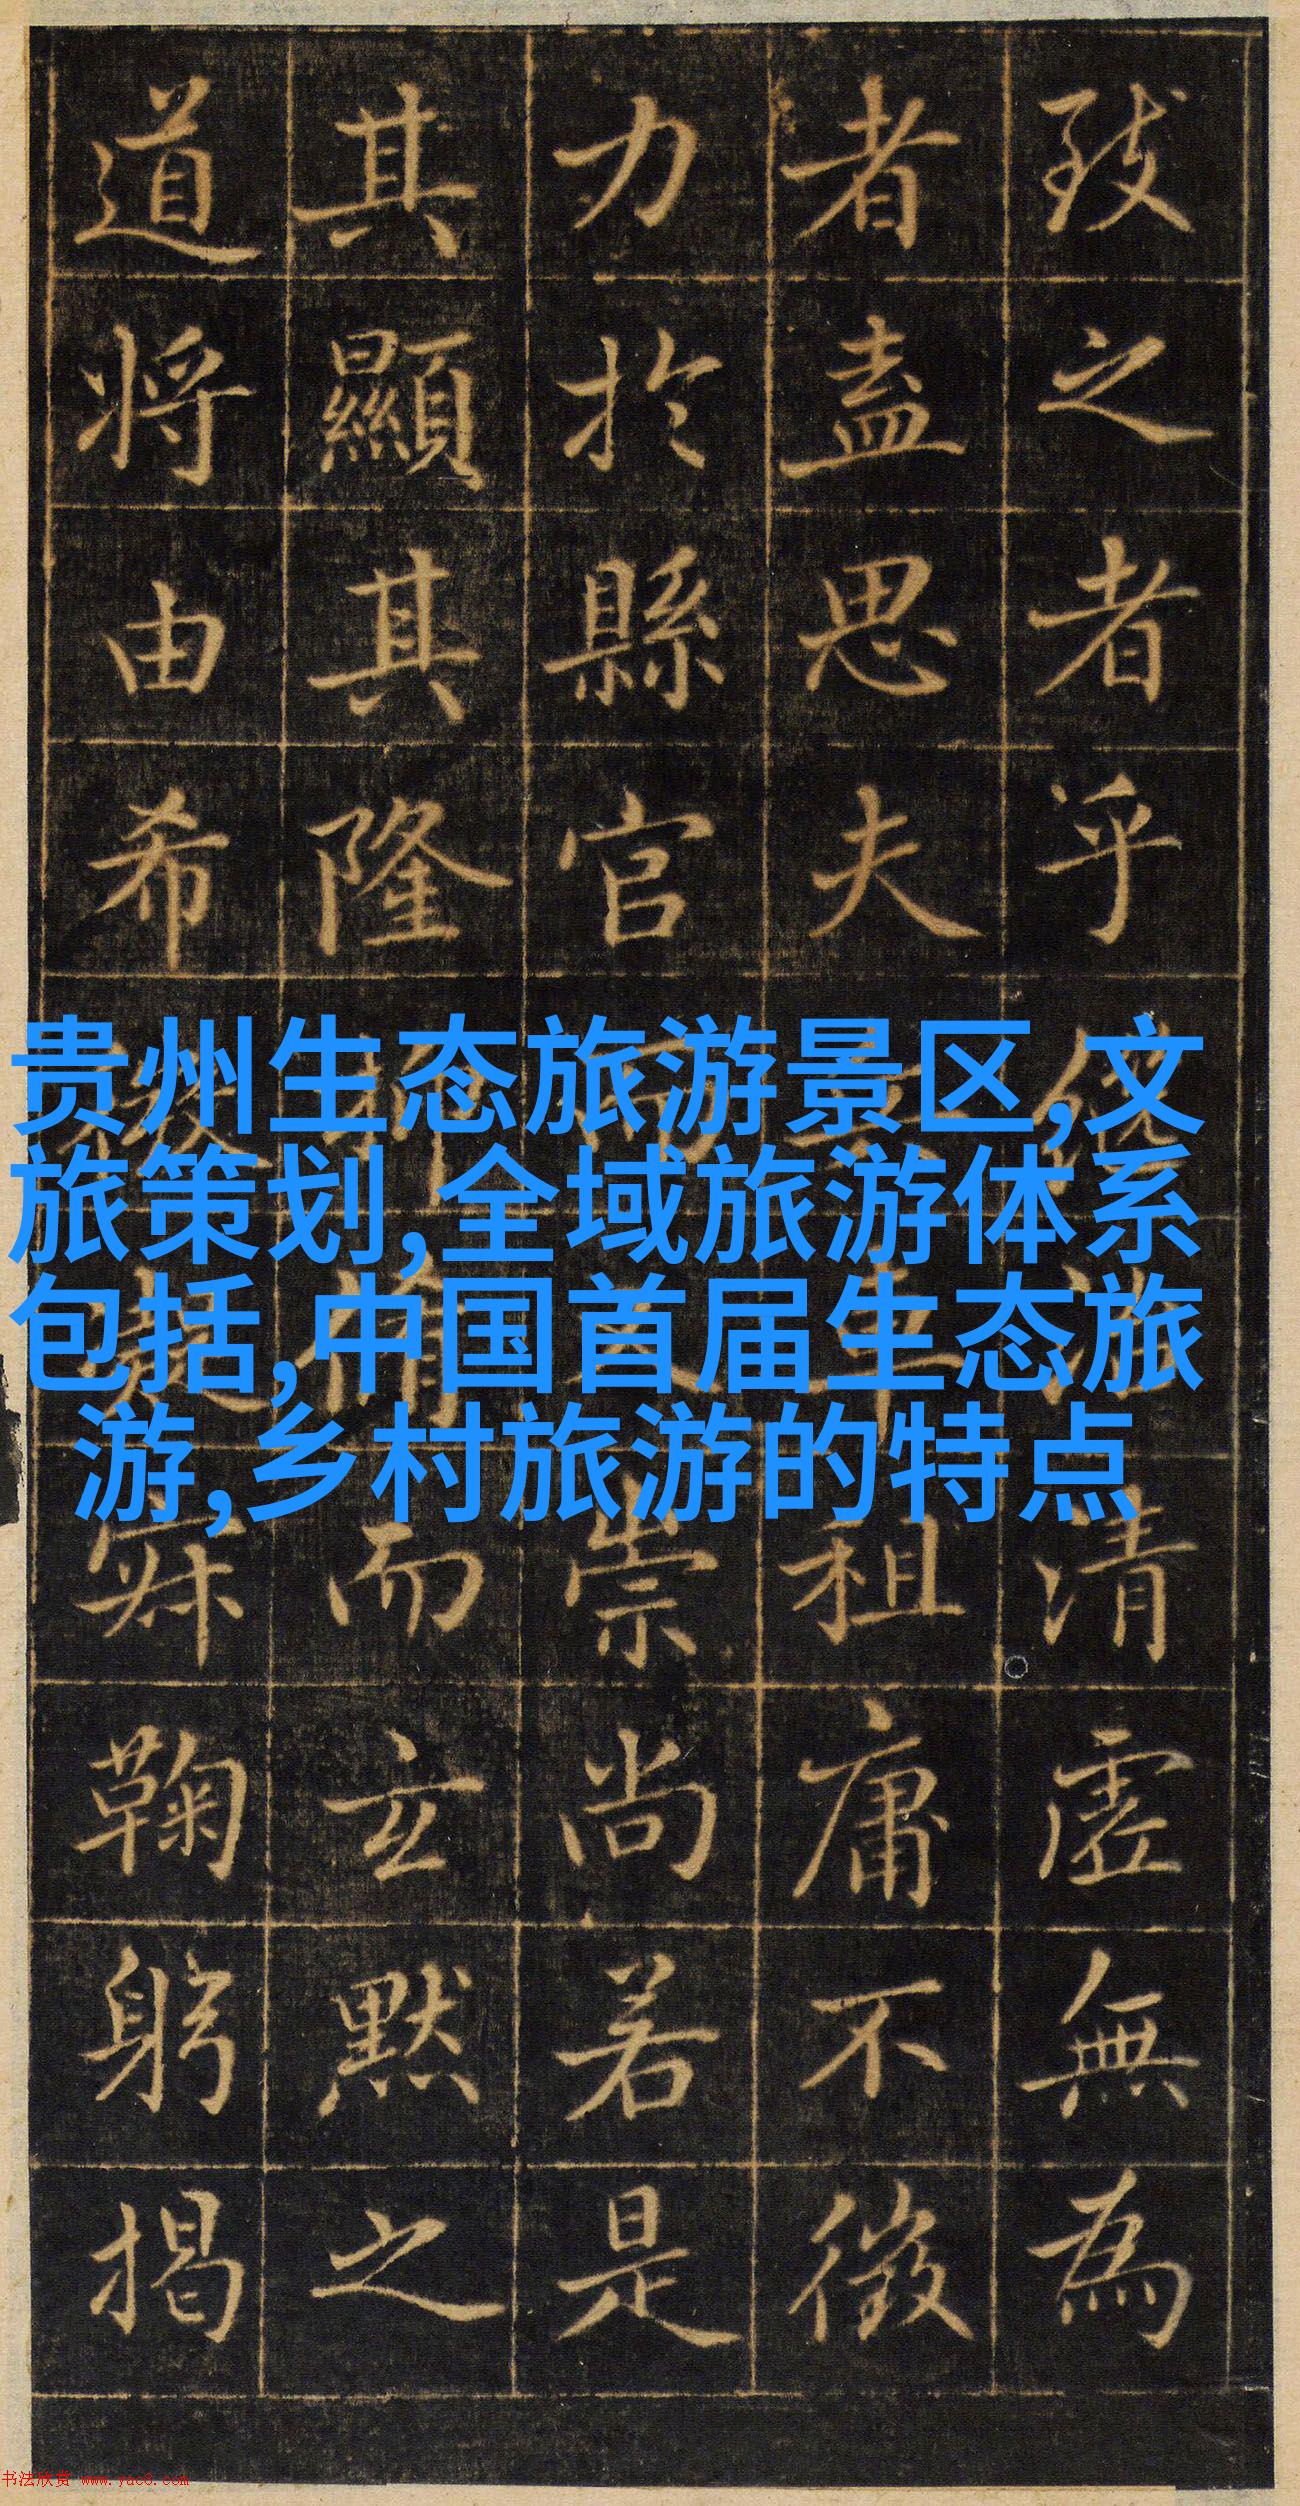 致之者乎清虛無為
者盡思夫租庸不徵
力於縣官崇尚若是
其顯其隆而玄默之
道將由希寂鞠躬揭
贵州生态旅游景区,文
旅策划,全域旅游体系
包括,中国首届生态旅
游,乡村旅游的特点
书法欣赏 www.yac8.com